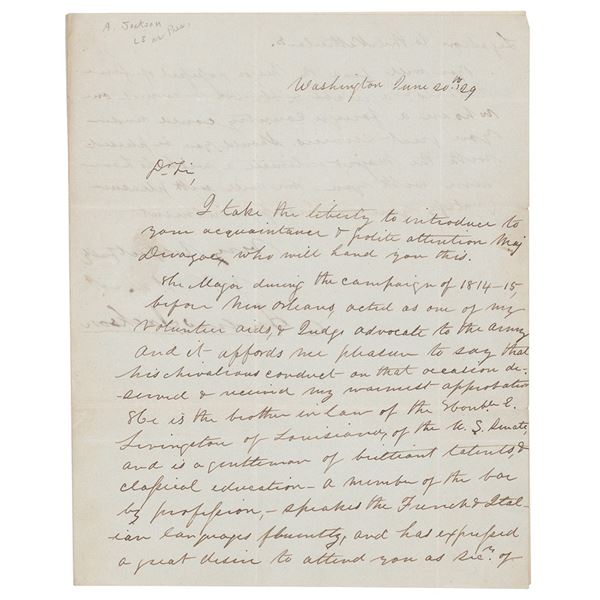 A. Jackson
LS as Pres.
Washington June 20th 1829
Dr Sir,
I take the liberty to introduce to
your acquaintance & polite attention Maj
Davezac, who will hand you this.
The Major during the campaign of 1814-15,
before New Orleans, acted as one of my
volunteer aids, & Judge advocate to the army
and it affords me pleasure to say that
his chivalrous conduct on that occasion de-
served & received my warmest approbation
He is the brother in law of the Honble E.
Livingston of Louisiana, of the U. S. Senate,
and is a gentleman of brilliant talents &
classical education - a member of the bar
by profession, - speaks the French & Ital-
ian languages fluently, and has expressed
a great desire to attend you as Secy. of